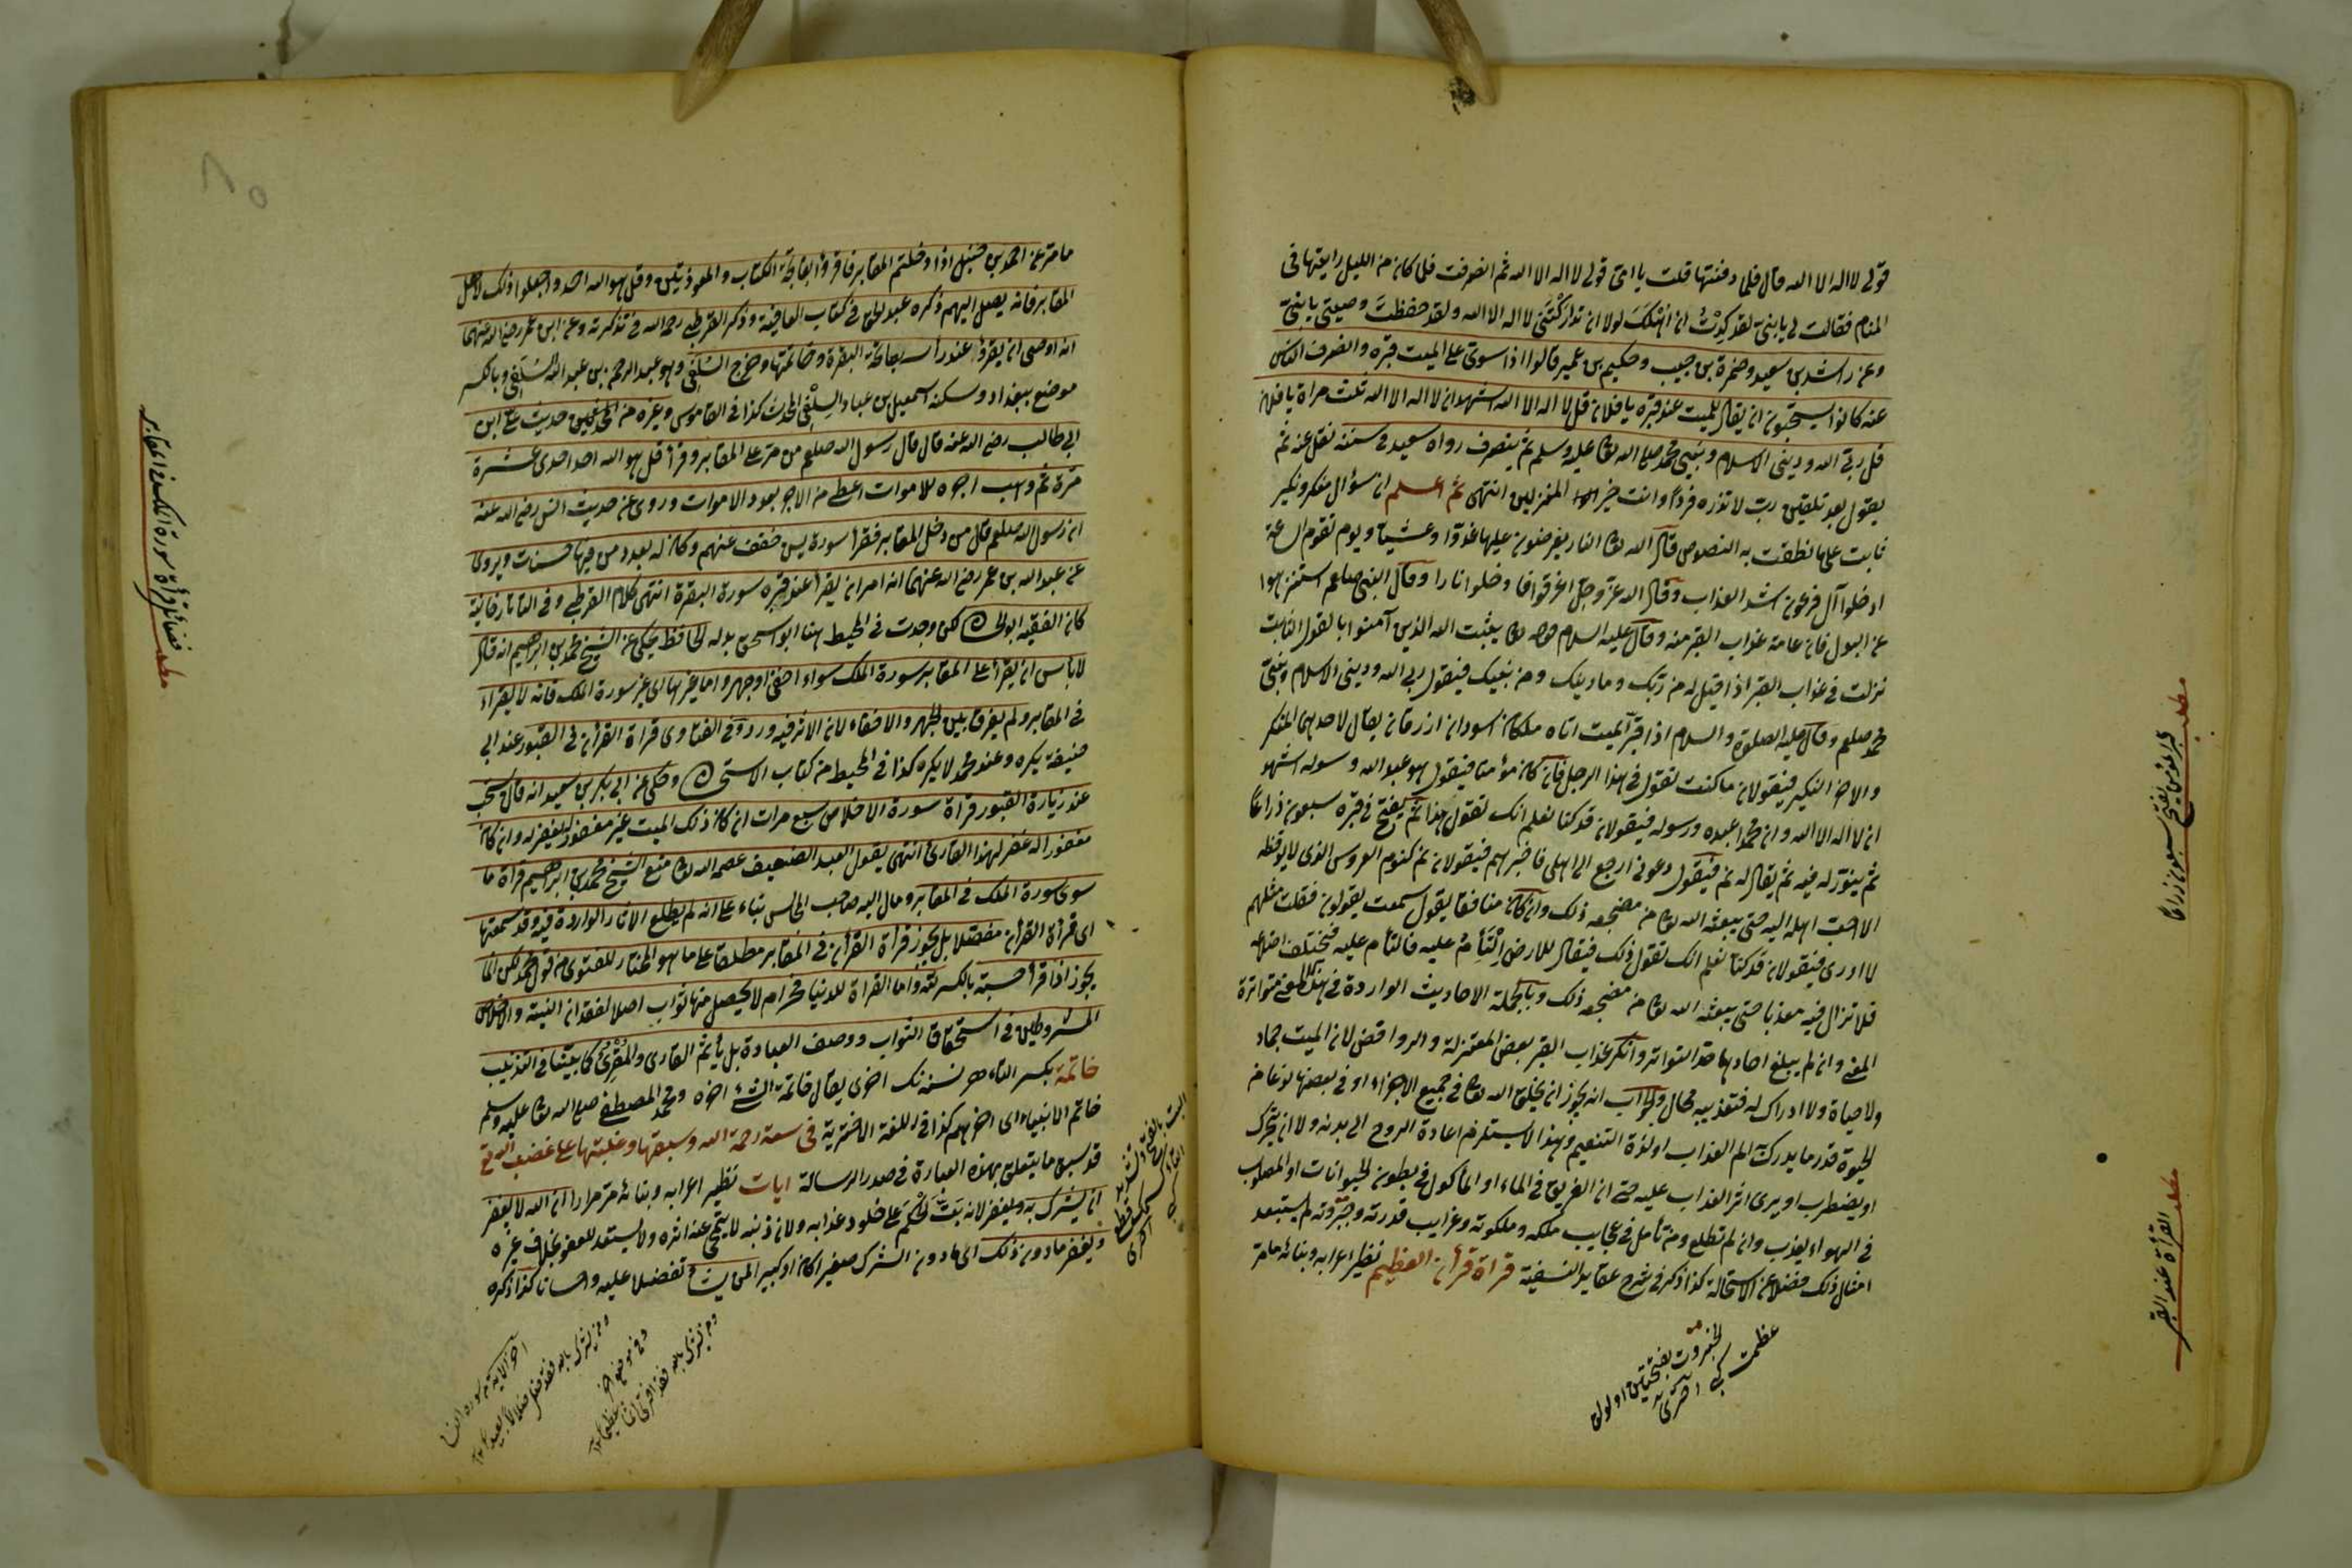 قولى لا اله الا الله قال فلما دفنتها قلت يا امى قولى لا اله الا الله ثم انصرفت فلما كان من الليل رايتها فى
المنام فقالت لى يا بنى لقد كِدْتُ ان اَهْلَكَ لولا ان تداركَتْنى لا اله الا الله ولقد حفظتَ وصيتى يا بنى
وعن راشد بن سعيد وضمرة بن حبيب وحكيم بن عمير قالوا اذا سوى على الميت قبره وانصرف الناس
عنه كانوا يستحبون ان يقال للميت عند قبره يا فلان قل لا اله الا الله اشهد ان لا اله الا الله ثلث مراة يا فلان
قل ربى الله ودينى الاسلام ونبيى محمد صلى الله تعا عليه وسلم ثم ينصرف رواه سعيد فى سننه نقل عنه ثم
يقول بعد تلقين رب لا تذره فردا وانت خير المنزلين انتهى ثم اعلم ان سؤال منكر ونكير
ثابت على ما نطقت به النصوص قال الله تعا النار يعرضون عليها غدوا وعشيا ويوم تقوم الساعة
ادخلوا آل فرعون اشد العذاب وقال الله عز وجل اغرقوا فادخلوا نارا وقال النبى صلعم استنزهوا
عن البول فان عامة عذاب القبر منه وقال عليه السلام قوله تعا يثبت الله الذين آمنوا بالقول الثابت
نزلت فى عذاب القبر اذا قيل له من ربك وما دينك ومن نبيك فيقول ربى الله ودينى الاسلام ونبيى
محمد صلعم وقال عليه الصلوة والسلام اذا قبر الميت اتاه ملكان اسودان ازرقان يقال لاحدهما المنكر
والاخر النكير فيقولان ما كنت تقول فى هذا الرجل فان كان مؤمنا فيقول هو عبد الله ورسوله اشهد
ان لا اله الا الله وان محمدا عبده ورسوله فيقولان قد كنا نعلم انك تقول هذا ثم يفتح فى قبره سبعون ذراعا
ثم ينور له فيه ثم يقال له نم فيقول دعونى ارجع الى اهلى فاخبرهم فيقولان نم كنوم العروس الذى لا يوقظه
الا احب اهله اليه حتى يبعثه الله تعا من مضجعه ذلك وان كان منافقا يقول سمعت يقولون فقلت مثلهم
لا ادرى فيقولان قد كنا نعلم انك تقول ذلك فيقال للارض اِلْتَأِمى عليه فالتأم عليه فيختلف اضلاعه
فلا تزال فيه معذبا حتى يبعثه الله تعا من مضجعه ذلك وبالجملة الاحاديث الواردة فى هذا المعنى متواترة
المعنى وان لم يبلغ احادها حد التواتر وانكر عذاب القبر بعض المعتزلة والروافض لان الميت جماد
ولا حياة ولا ادراك له فتعذيبه محال والجواب انه يجوز ان يخلق الله تعا فى جميع الاجزاء او فى بعضها نوعا من
الحيوة قدر ما يدرك الم العذاب او لذة التنعيم وهذا لا يستلزم اعادة الروح الى بدنه ولا ان يتحرك
او يضطرب او يرى اثر العذاب عليه حتى ان الغريق فى الماء او المأكول فى بطون الحيوانات او المصلوب
فى الهواء يعذب وان لم نطلع ومن تأمل فى عجايب ملكه وملكوته وغرايب قدرته وجبروته لم يستبعد
امثال ذلك فضلا عن الاستحالة كذا ذكر فى شرح عقايد النسفية قراة قرأن العظيم نظير اعرابه وبنائه ما مر
الجبروت بفتحتين اولولق
عظمت كبى اختريه
مطلب قبر المؤمن يفتح سبعون ذراعا
مطلب القرأة عند القبر
ما مر عن احمد بن حنبل اذا دخلتم المقابر فاقرؤا بفاتحة الكتاب والمعوذتين وقل هو الله احد واجعلوا ذلك لاهل
المقابر فانه يصل اليهم ذكره عبد الحق فى كتاب العاقبة وذكر القرطبى رحمه الله فى تذكرته وعن ابن عمر رضى الله عنهما
انه اوصى ان يقرؤا عند رأسه بفاتحة البقرة وخاتمتها وخرج السلفى وهو عبد الرحمن بن عبد الله السلفى وبالكسر
موضع ببغداد وسكنه اسمعيل بن عباد السِلْفى المحدث كذا فى القاموس وغيره من المحدثين حديث على ابن
ابى طالب رضى الله عنه قال قال رسول الله صلعم من مر على المقابر وقرأ قل هو الله احد احدى عشرة
مرة ثم وهب اجره للاموات اعطى من الاجر بعدد الاموات وروى عن حديث انس رضى الله عنه
ان رسول الله صلعم قال من دخل المقابر فقرأ سورة يس خفف عنهم وكان له بعدد من فيها حسنات ويروى
عن عبد الله بن عمر رضى الله عنهما انه امر ان يقرأ عند قبره سورة البقرة انتهى كلام القرطبى وفى التاتارخانية
كان الفقيه ابو لكن وجدت فى المحيط هنا ابو اسحق بدله الحافظ يحكى عن الشيخ محمد بن ابراهيم انه قال
لا بأس ان يقرأ على المقابر سورة الملك سواء اخفى او جهر واما غيرها اى غير سورة الملك فانه لا يقراء
فى المقابر ولم يفرق بين الجهر والاخفاء لان الاثر فيه ورد وفى الفتاوى قراة القرأن فى القبور عند ابى
حنيفة يكره وعند محمد لا يكره كذا فى المحيط من كتاب وحكى عن ابى بكر بن سعيد انه قال يستحب
عند زيارة القبور قراة سورة الاخلاص سبع مرات ان كان ذلك الميت غير مغفور له يغفر له وان كان
مغفورا له غفر لهذا القارى انتهى يقول العبد الضعيف عصمه الله تعا منع الشيخ محمد بن ابراهيم قراة ما
سوى سورة الملك فى المقابر ومال اليه صاحب المجالس بناء على انه لم يطلع الاثار الواردة فيه وقد سمعتها
اى قرأة القرأن مفصلا بل يجوز قرأة القرأن فى المقابر مطلقا على ما هو المختار للفتوى من قول محمد لكن انما
يجوز اذا قرأ حسبة بالكسر لله واما القراة للدنيا فحرام لا يحصل منها ثواب اصلا لفقدان النية والاخلاص
المشروطين فى استحقاق الثواب ووصف العبادة بل يأثم القارى والمُقْرِئ كما بيّنا فى التذنيب
خاتمة بكسر التاء هر نسنه نك اخرى يقال خاتمة الشئ اخره ومحمد المصطفى صلى الله تعا عليه وسلم
خاتم الانبياء اى اخرهم كذا فى اللغة الاخترية فى سعة رحمة الله وسبقها وغلبتها على غضب الله تع
قد سبق ما يتعلق بهذه العبارة فى صدر الرسالة ايات نظير اعرابه وبنائه مر مرارا ان الله لا يغفر
ان يشرك به ويغفر لانه بَتَّ الحُكمَ على خلود عذابه ولان ذنبه لا ينمحى عنه اثره ولا يستعد للعفو بخلاف غيره
ويغفر ما دون ذلك اى ما دون الشرك صغيرا كان او كبيرا لمن يشاء تفضلا عليه واحسانا كذا ذكره
مطلب قرأة سورة الملك فى المقابر
اخر الاية فى سورة النساء
ومن يشرك بالله فقد ضل ضلالا بعيدا
وفى موضع اخر
ومن يشرك بالله فقد افترى اثما عظيما